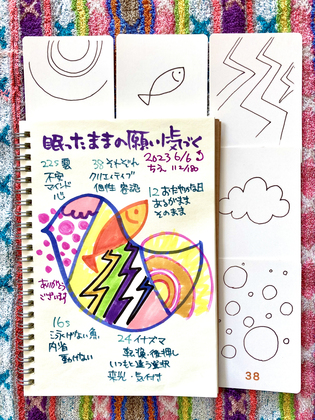 眠ったままの願い気づく
2023 6/6
ちえ 112/180
225 愛
不安
マインド
心
38 それぞれ
クリエイティブ
個性 容認
12 おだやかな日
あるがまま
そのまま
ありがとう
ございます
165
泳げない魚
内省
動けない
24 イナズマ
乾燥・後押し
いつもと違う選択
発光・気付き
38